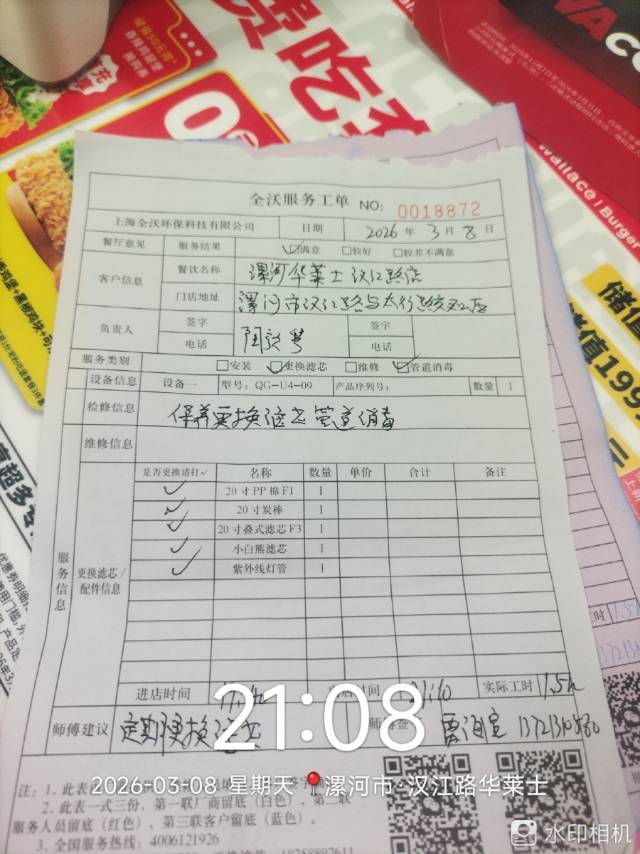 全沃服务工单 NO: 0018872
上海全沃环保科技有限公司 日期 2026 年 3 月 8 日
餐厅意见 服务结果 ☑满意 □较好 □较差不满意
客户信息 餐饮名称 漯河华莱士汉江路店
门店地址 漯河市汉江路与太行路交叉口
负责人 签字 签字
电话 电话
服务类别 □安装 ☑更换滤芯 □维修 ☑管道消毒
设备信息 设备一 型号: QG-U4-09 产品序列号: 数量 1
检修信息 保养更换滤芯管道消毒
维修信息
服务信息
更换滤芯/配件信息
是否更换请打✓ 名称 数量 单价 合计 备注
✓ 20寸PP棉F1 1
✓ 20寸炭棒 1
✓ 20寸叠式滤芯F3 1
✓ 小白熊滤芯 1
✓ 紫外线灯管 1
进店时间 时间 21:10 实际工时 1.5h
师傅建议 定期更换滤芯
21:08
2026-03-08 星期天 漯河市·汉江路华莱士
注: 1. 此表
2. 此表一式三份，第一联厂商留底（白色），第二联
服务人员留底（红色），第三联客户留底（蓝色）。
3. 全国服务热线: 4006121926
18758897611
水印相机
储值50元得
香辣鸡腿堡
Wallace / Burger
储值
储值199